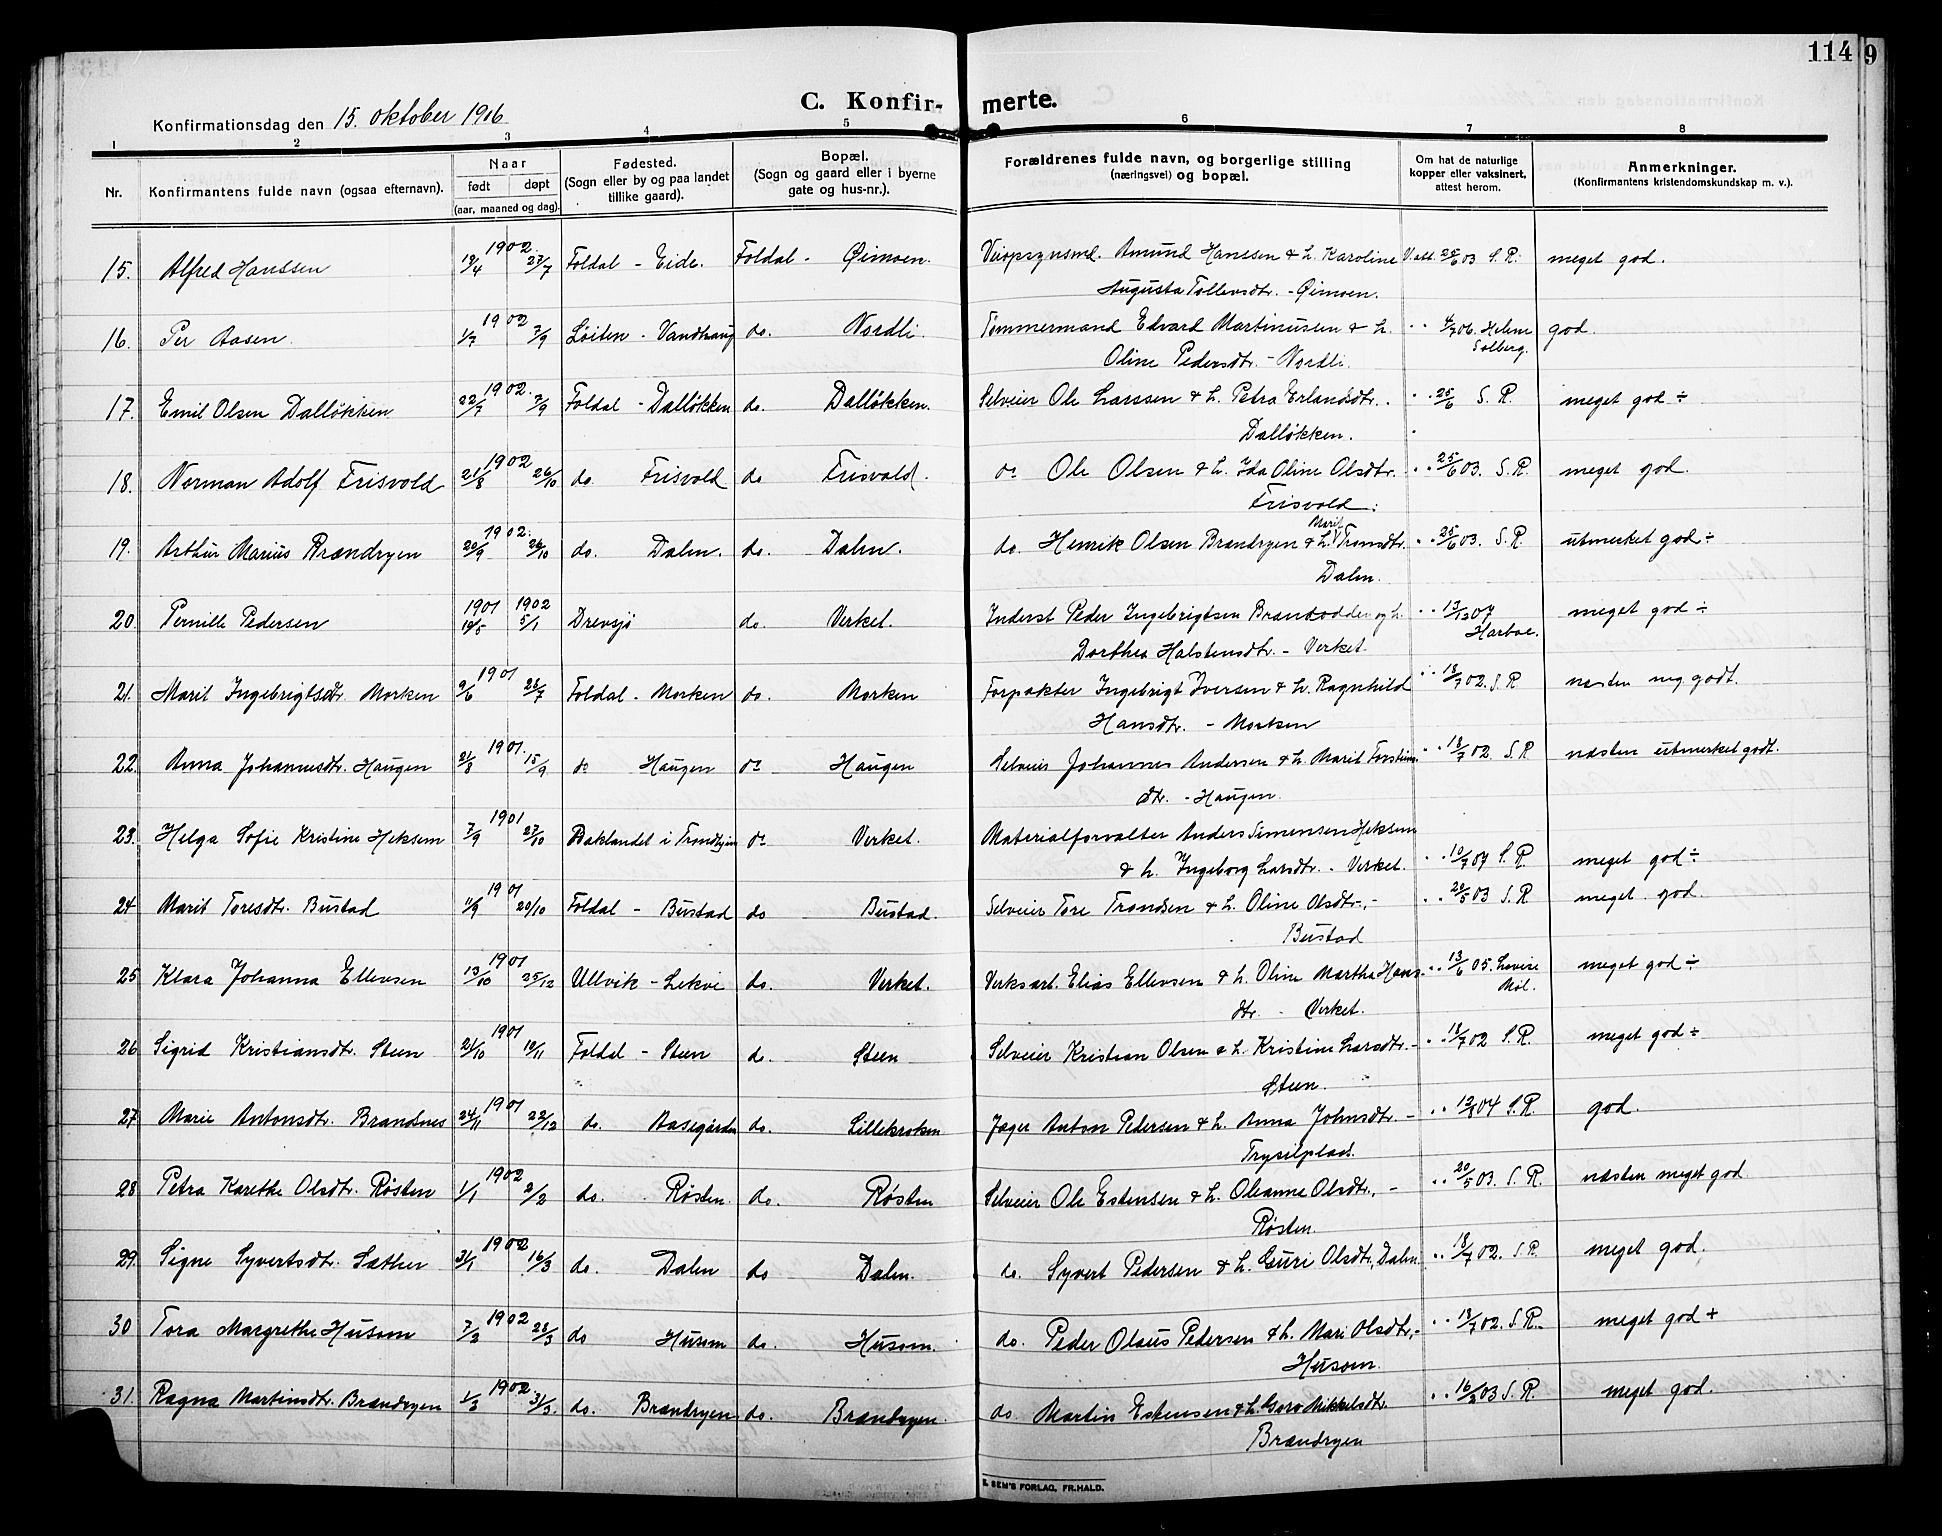 114 9
C. Konfir- merte.
Konfirmationsdag den 15. oktober 1916
1 2 3 4 5 6 7 8
Nr. Konfirmantens fulde navn (ogsaa efternavn). Naar født døpt (aar, maaned og dag). Fødested. (Sogn eller by og paa landet tillike gaard). Bopæl. (Sogn og gaard eller i byerne gate og hus-nr.). Forældrenes fulde navn, og borgerlige stilling (næringsvei) og bopæl. Om hat de naturlige kopper eller vaksinert, attest herom. Anmerkninger. (Konfirmantens kristendomskundskap m. v.).
15. Alfred Hanssen 19/4 1902 27/7 Foldal - Eide. Foldal - Øimoen. Veiopsynsmd. Amund Hanssen & h. Karoline V. att. 25/6 03 S. R. meget god.
Augusta Tollevsdtr. - Øimoen.
16. Per Aasen. 1/7 1902 7/9 Løiten - Vandhaug do. Nordli. Tømmermand Edvard Martinussen & h. " 4/7 06. Helene Solberg. god.
Oline Pedersdtr. - Nordli.
17. Emil Olsen Dalløkken 22/7 1902. 7/9 Foldal - Dalløkken do. Dalløkken. Selveier Ole Larssen & h. Petra Erlandsdtr. " 25/6 S. R. meget god ÷
Dalløkken.
18. Norman Adolf Frisvold 21/8 1902 26/10 do. Frisvold do Frisvold. do Ole Olsen & h. Ida Oline Olsdtr. " 25/6 03. S. R. meget god.
Frisvold.
19. Arthur Marius Brændryen 20/9 1902. 26/10 do. Dalen. do. Dalen. do. Henrik Olsen Brændryen & h. Marit Tronsdtr. " 25/6 03. S. R. utmerket god ÷
Dalen.
20 Pernille Pedersen 1901 19/5 1902 5/1 Drevsjø do. Verket. Inderst Peder Ingebrigtsen Brændodden og h. " 13/12 07 Harboe. meget god ÷
Dorthea Halstensdtr. - Verket.
21. Marit Ingebrigtsdtr. Morken 9/6 1901 28/7 Foldal - Morken do. Morken Forpakter Ingebrigt Iversen & h. Ragnhild " 18/7 02. S. R næsten meg. godt.
Hansdtr. - Morken
22. Anna Johannesdtr. Haugen 21/8 1901. 15/9 do Haugen do Haugen Selveier Johannes Andersen & h. Marit Torsteins- " 18/7 02. S. R næsten utmerket godt.
dtr. - Haugen.
23. Helga Sofie Kristine Heksem 7/9 1901 27/10 Baklandet i Trondhjem do Verket. Materialforvalter Anders Simensen Heksem
& h. Ingeborg Larsdtr. - Verket. " 10/7 07 S. R. meget god ÷
24 Marit Toresdtr. Bustad 11/9 1901 20/10 Foldal - Bustad do Bustad. Selveier Tore Trondsen & h. Oline Olsdtr. - " 28/5 03 S. R meget god.
Bustad
25 Klara Johanna Ellevsen 13/10 1901 25/12 Ullvik - Lekve do. Verket. Verksarb. Elias Ellevsen & h. Oline Martha Hans- " 13/6 05. Lovise Mol. meget god ÷
dtr. - Verket.
26 Sigrid Kristiansdtr. Steen 21/10 1901 10/11 Foldal - Steen do. Steen Selveier Kristian Olsen & h. Kristine Larsdtr. - " 18/7 02 S. R. meget god ÷
Steen.
27 Marie Antonsdtr. Brandsnes 24/11 1901 22/12 do. Aasegården do. Lillekroken Jæger Anton Pedersen & h. Anna Johnsdtr. - " 04 S. R. god.
Trysilplads.
28 Petra Karethe Olsdtr. Røsten 1/1 1902 2/2 do. Røsten. do. Røsten Selveier Ole Estensen & h. Oleanna Olsdtr., - " 20/5 03. S. R. næsten meget god
Røsten.
29. Signe Syvertsdtr. Sæther 31/1 1902 16/3 do. Dalen do Dalen. do. Syvert Pedersen & h. Guri Olsdtr., Dalen " 18/7 02. S. R. meget god.
30 Tora Margrethe Husom 7/2 1902 28/3 do Husom do. Husom. do. Peder Olaus Pedersen & h. Mari Olsdtr., - " 18/7 02. S. R. meget god +
Husom.
31. Ragna Martinsdtr. Brændryen 1/3 1902. 31/3. do. Brændryen do. Brændryen. do Martin Estensen & h. Goro Mikkelsdtr. " 16/ 03 S. R. meget god.
Brændryen
E. SEM'S FORLAG, FR.HALD.